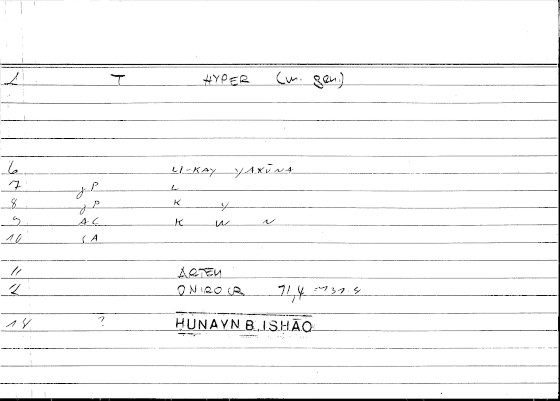 1 T HYPER (w. gen.)
6 LI-KAY YAKŪNA
7 gP L
8 gP K Y
9 AC K W N
10 SA
11 ARTEM
2 ONIROCR 71,4
14 ? HUNAYN B. ISHĀQ